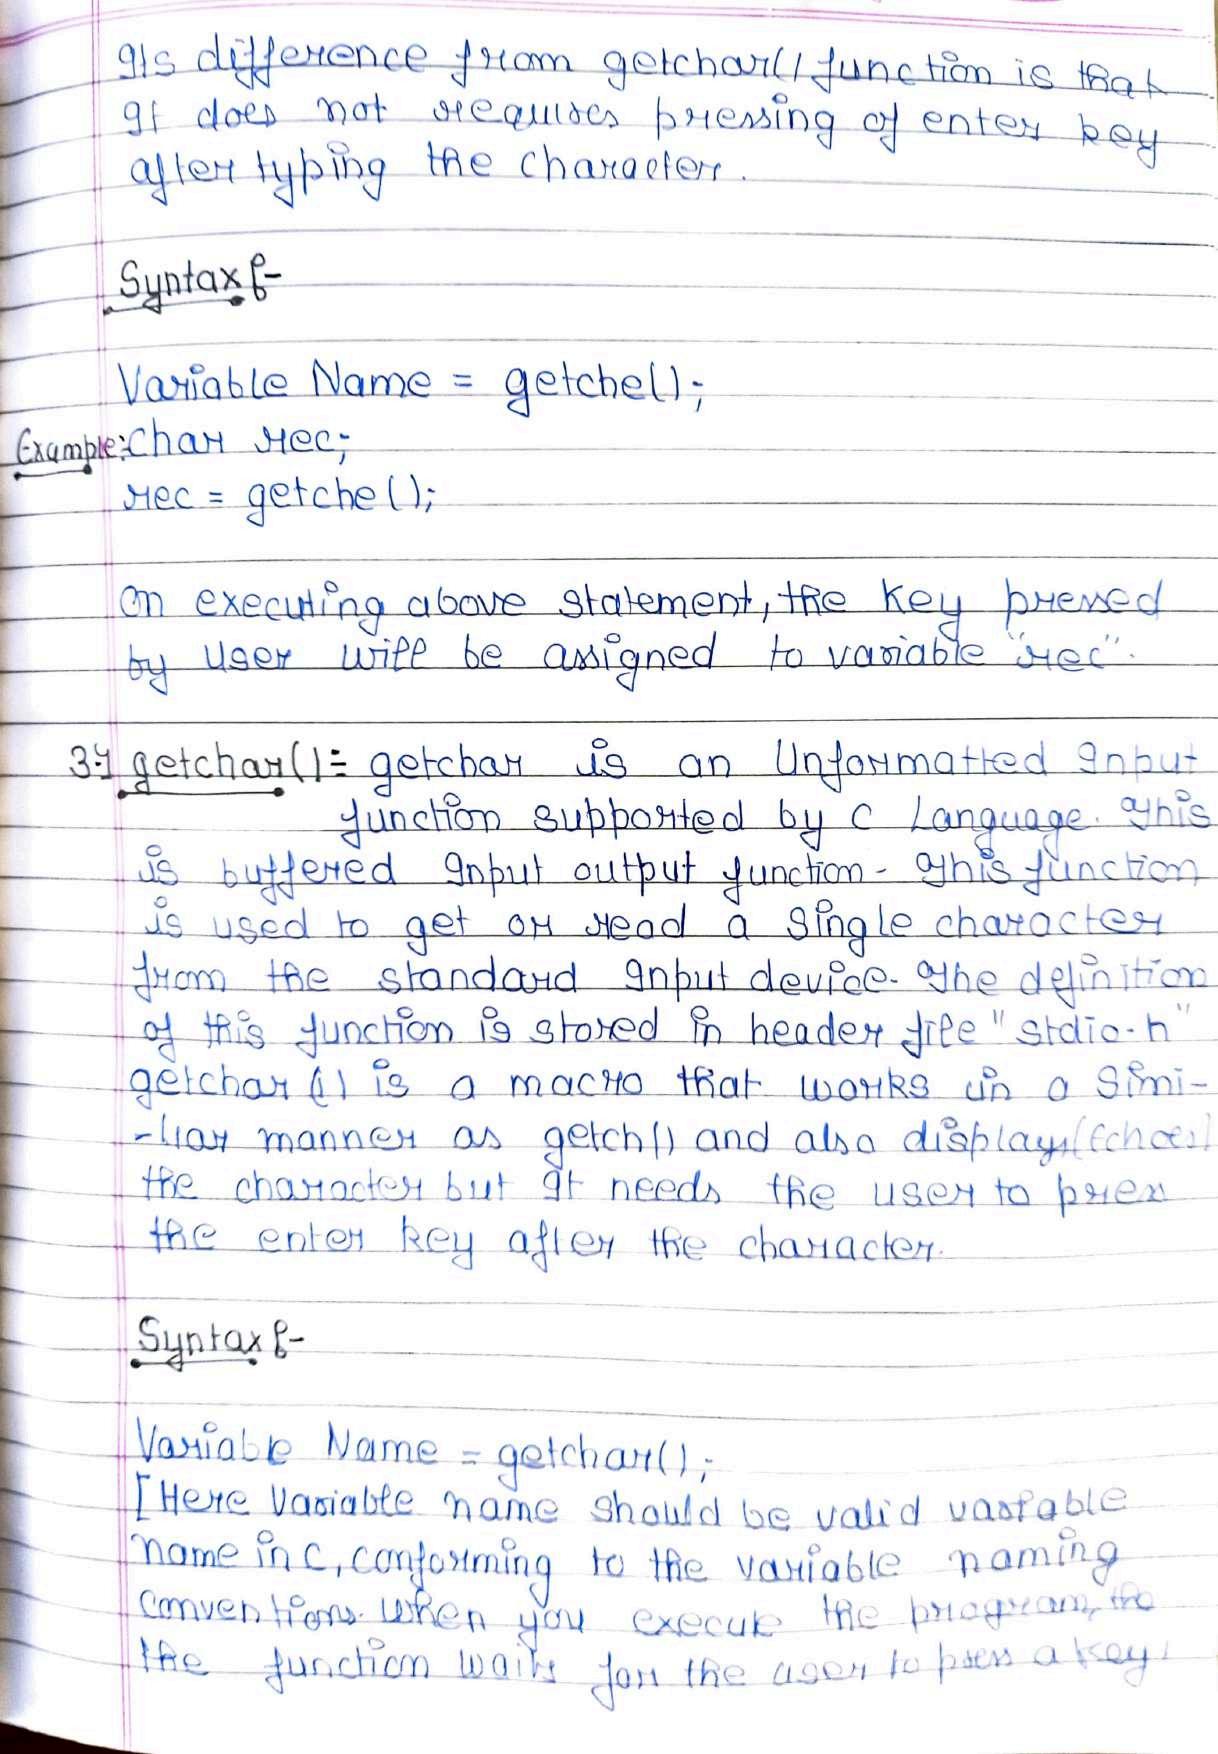 Its difference from getchar() function is that
It does not requires pressing of enter key
after typing the character.
Syntax :-
Variable Name = getche();
Example: Char rec;
rec = getche();
On executing above statement, the key pressed
by user will be assigned to variable "rec".
3.) getchar() := getchar is an Unformatted Input
function supported by C Language. This
is buffered Input output function. This function
is used to get or read a Single character
from the standard Input device. The definition
of this function is stored in header file "stdio.h"
getchar() is a macro that works in a Simi-
-liar manner as getch() and also displays (Echoes)
the character but It needs the user to press
the enter key after the character.
Syntax :-
Variable Name = getchar();
[Here Variable name should be valid variable
name in C, conforming to the variable naming
conventions. When you execute the program, the
the function waits for the user to press a key.